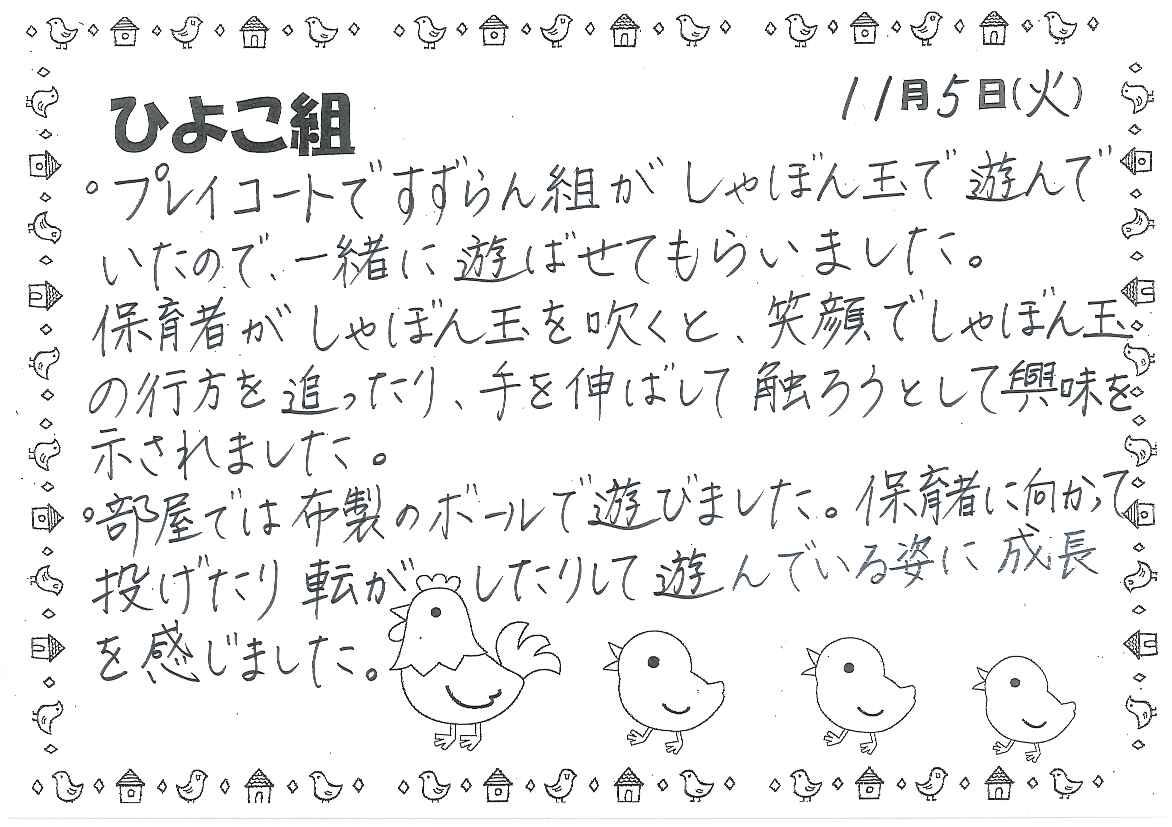 11月5日(火)
ひよこ組
。プレイコートですずらん組がしゃぼん玉で遊んで
いたので、一緒に遊ばせてもらいました。
保育者がしゃぼん玉を吹くと、笑顔でしゃぼん玉
の行方を追ったり、手を伸ばして触ろうとして興味を
示されました。
。部屋では布製のボールで遊びました。保育者に向かって
投げたり転がしたりして遊んでいる姿に成長
を感じました。